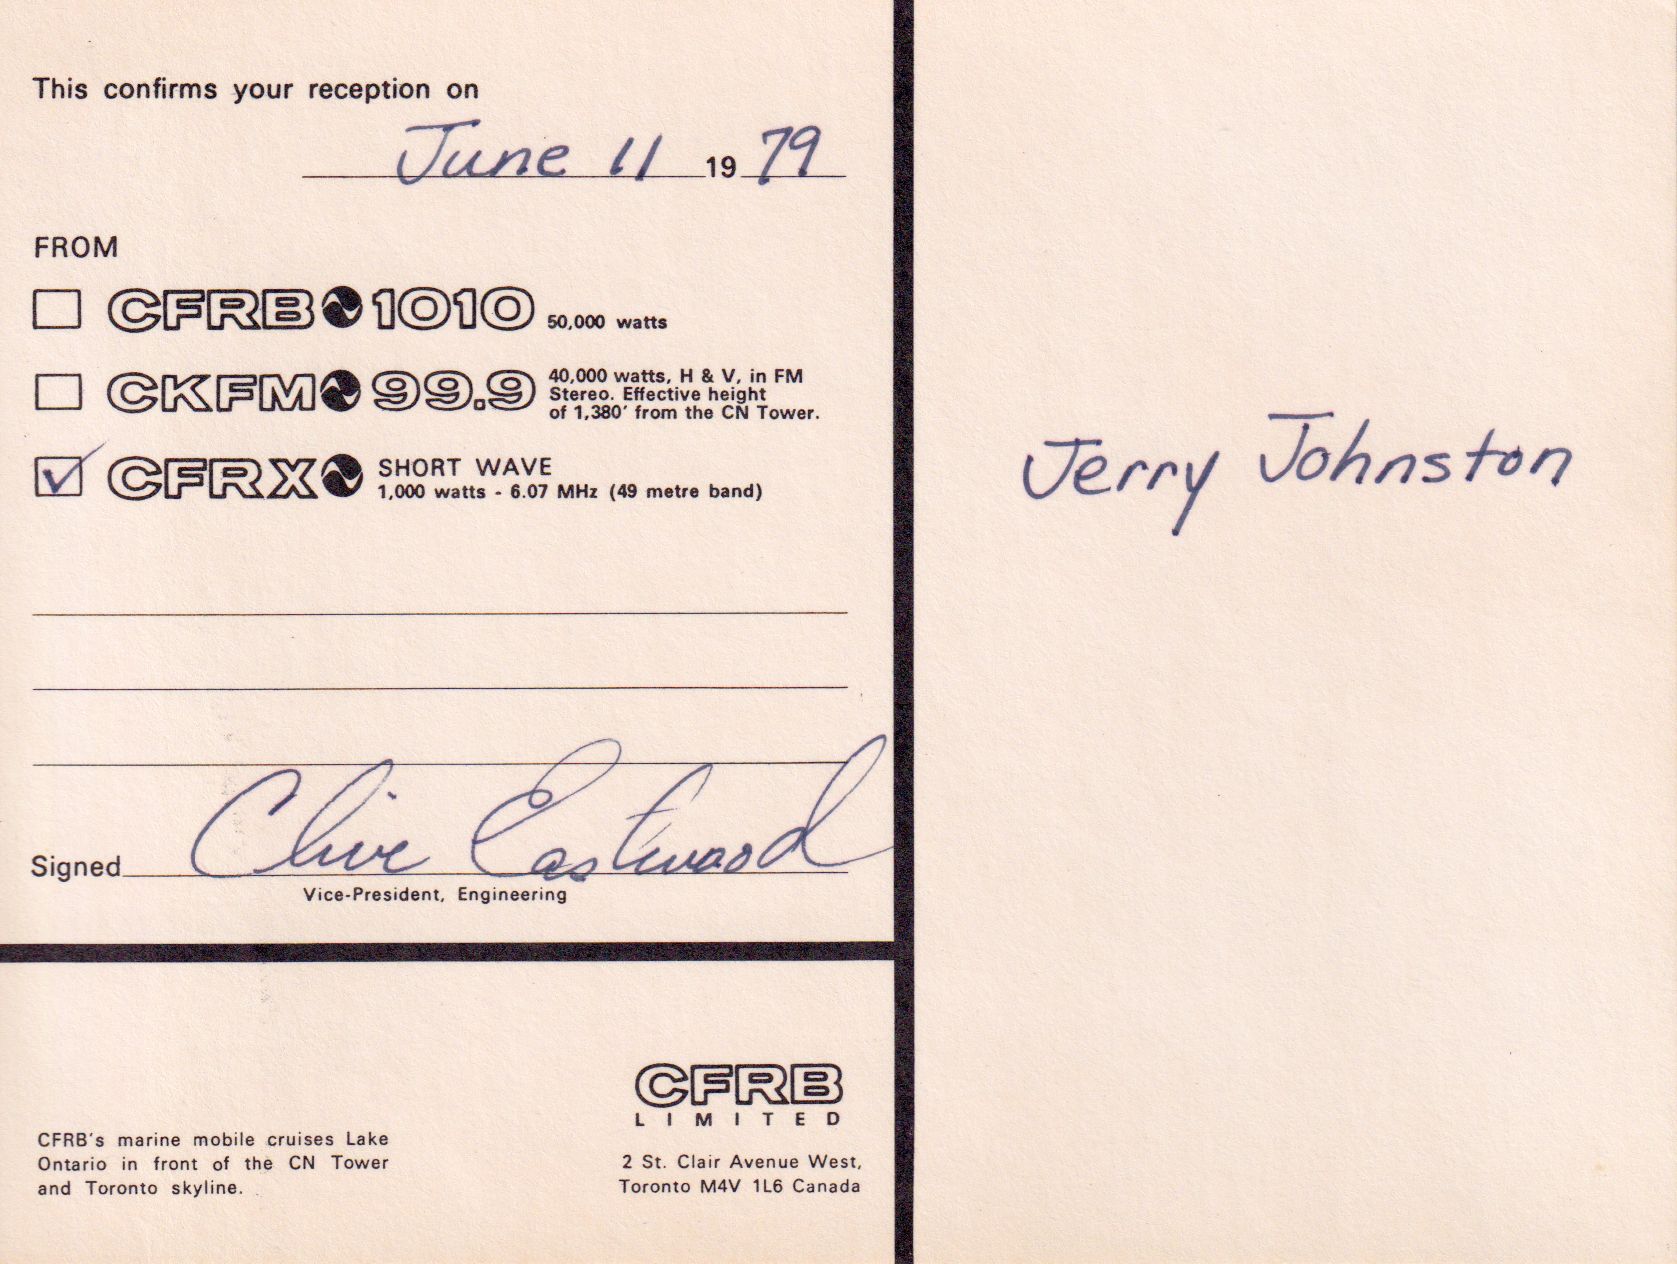 This confirms your reception on
June 11 1979
FROM
CFRB 1010 50,000 watts
CKFM 99.9 40,000 watts, H & V, in FM
Stereo. Effective height
of 1,380' from the CN Tower.
CFRX SHORT WAVE
1,000 watts - 6.07 MHz (49 metre band)
Signed Clive Eastwood
Vice-President, Engineering
CFRB's marine mobile cruises Lake
Ontario in front of the CN Tower
and Toronto skyline.
CFRB
LIMITED
2 St. Clair Avenue West,
Toronto M4V 1L6 Canada
Jerry Johnston